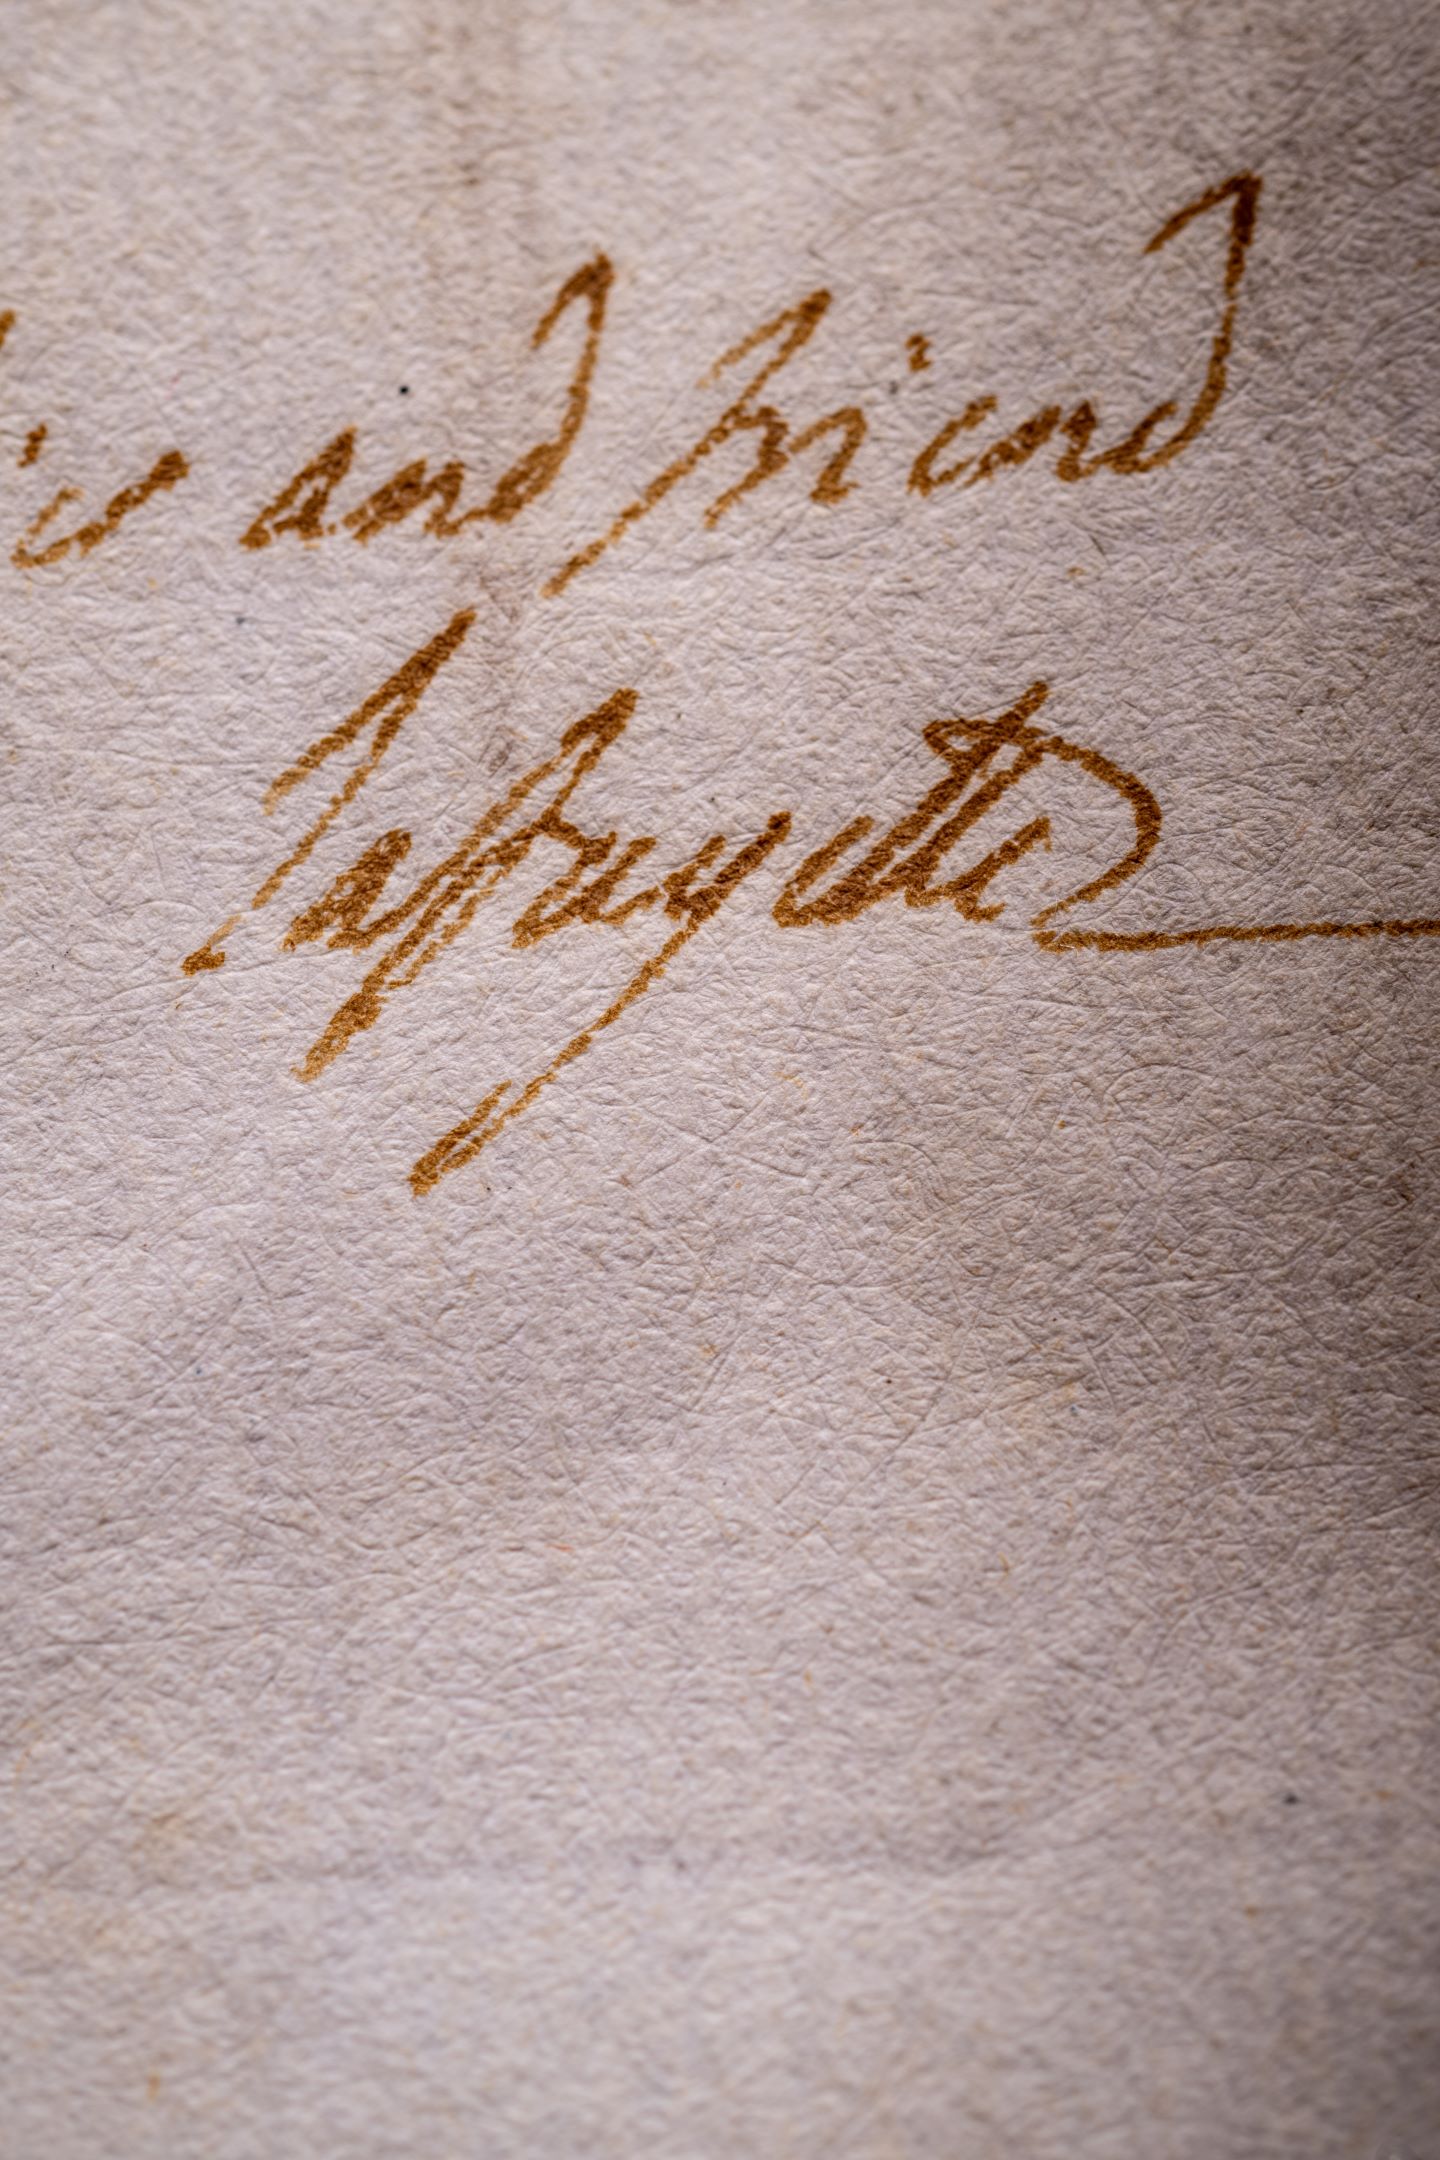 and friend
Lafayette